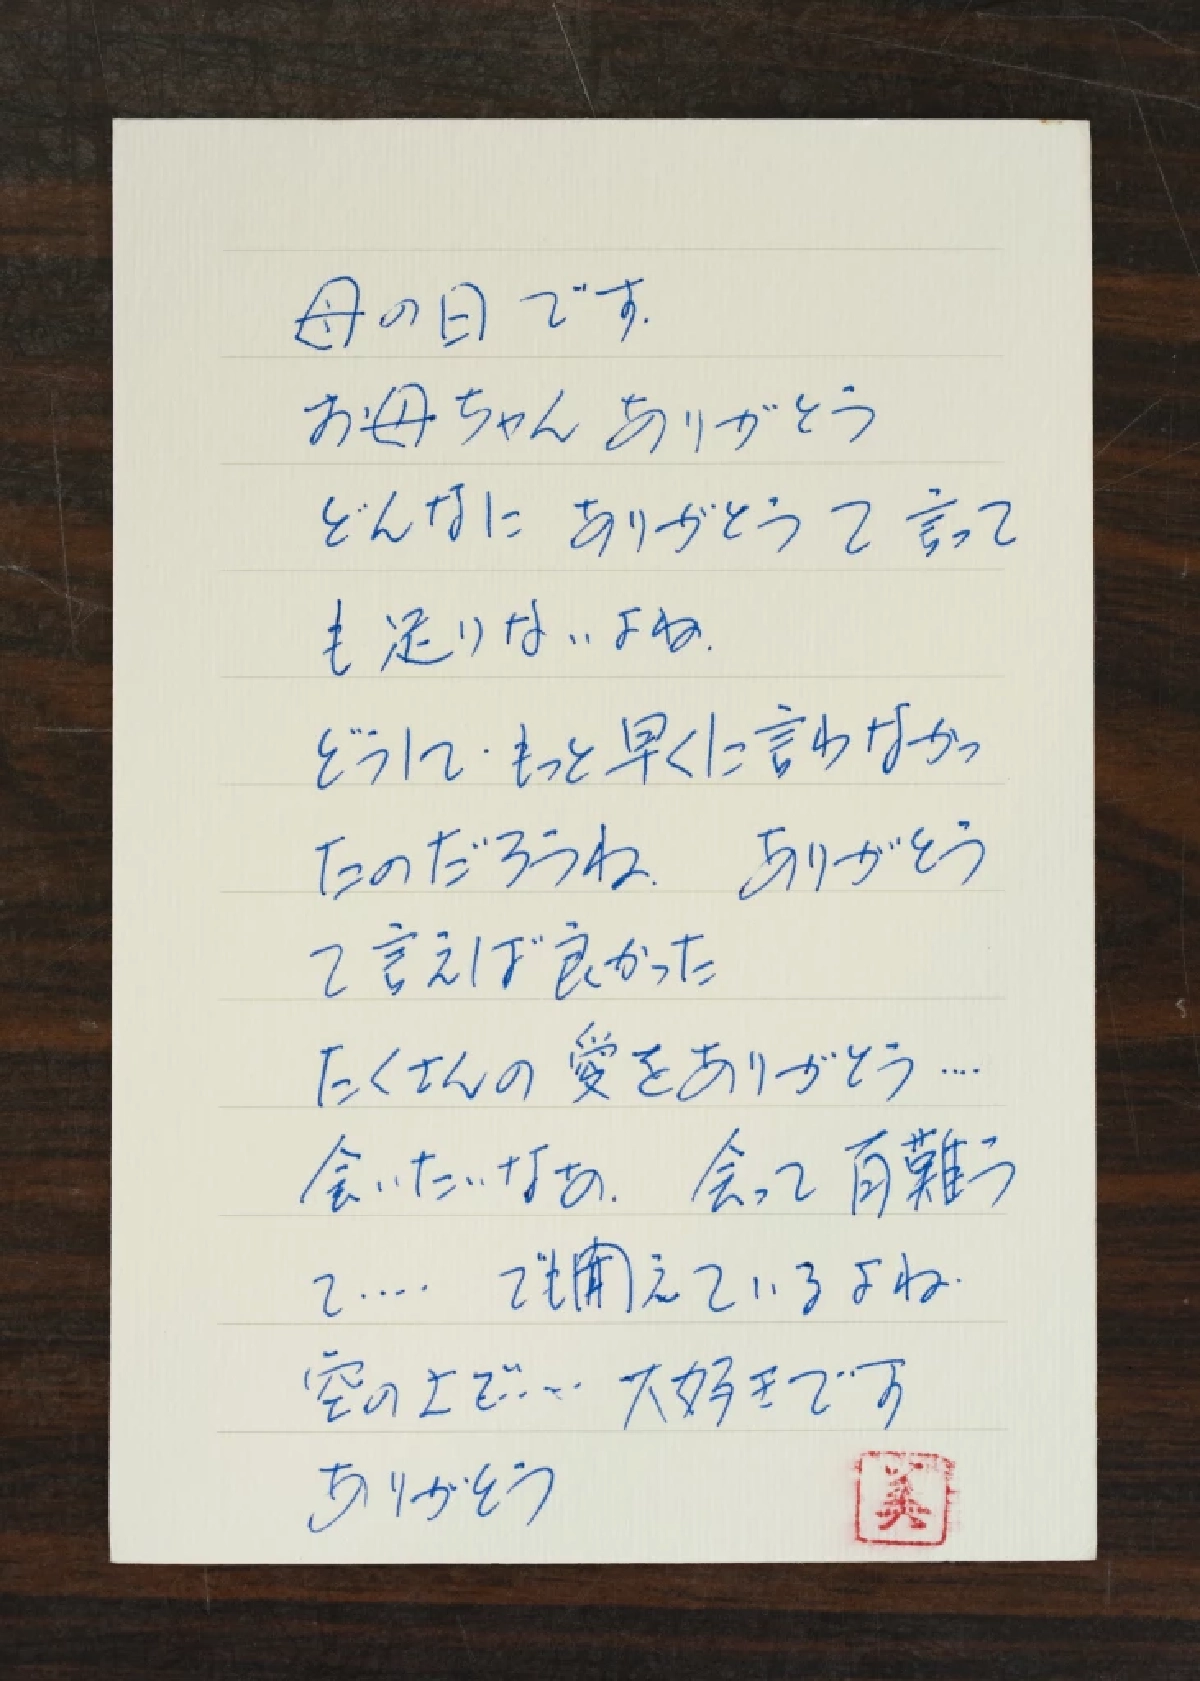 母の日です.
お母ちゃん ありがとう
どんなに ありがとう て 言って
も 足りないよね.
どうして・もっと早くに言わなかっ
たのだろうね. ありがとう
て言えば良かった
たくさんの愛をありがとう....
会いたいなあ. 会って 有難う
て..... でも聞えているよね.
空の上で.... 大好きです
ありがとう
美